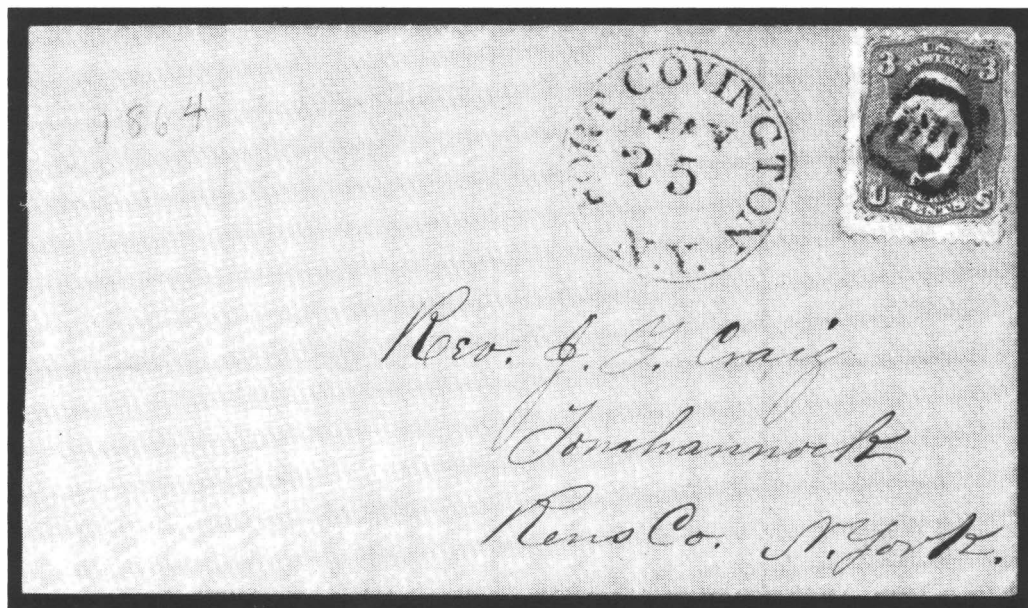 1864
FORT COVINGTON
MAY
25
N.Y.
3 3
U.S. POSTAGE
U CENTS S
Rev. J. Y. Craig
Tomhannock
Rens Co. N. York.